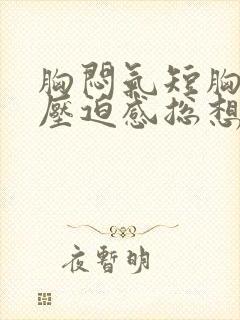 胸悶氣短胸
壓迫感总想
夜暫明